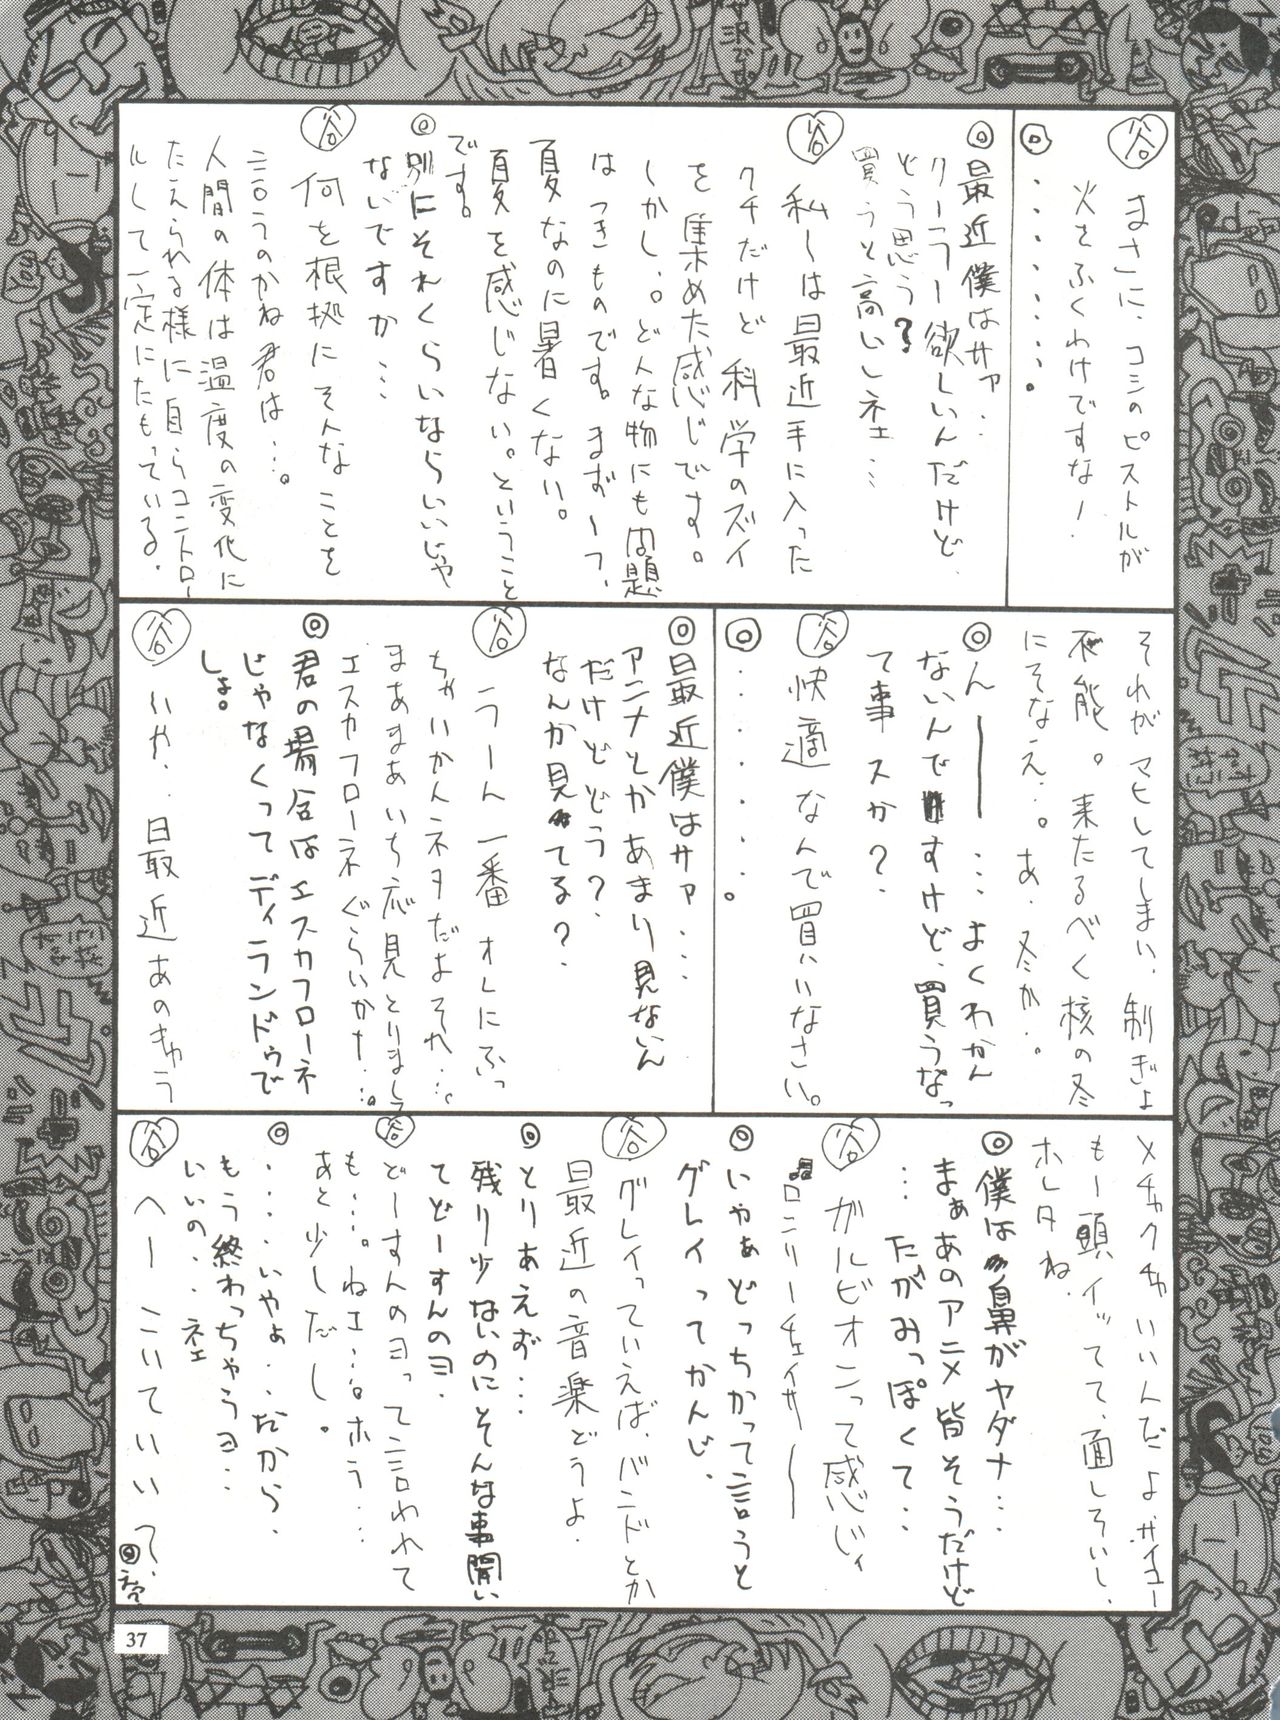 谷 まさに、コシのピストルが
火をふくわけですな!
◎・・・・・・・・。
◎最近僕はサァ・・・
クーラー欲しいんだけど、
どう思う?
買うと高いしネェ・・・
谷 私〜は最近手に入った
クチだけど科学のズイ
を集めた感じです。
しかし。どんな物にも問題
はつきものです。まず一つ、
夏なのに暑くない。
夏を感じない。ということ
です。
◎別にそれくらいならいいじゃ
ないですか・・・
谷 何を根拠にそんなことを
言うのかね君は・・・。
人間の体は温度の変化に
たえられる様に自らコントロー
ルして一定にたもっている。
それがマヒしてしまい、制ぎょ
不能。来たるべく核の冬
にそなえ・・。あ・冬か・。
◎ん――・・・よくわかん
ないんですけど、買うなっ
て事スか?
谷 快適なんで買いなさい。
◎・・・・・・。
◎最近僕はサァ・・・
アニメとかあまり見ないん
だけどどう?
なんか見てる?
谷 うーん一番オレにふっ
ちゃいかんネタだよそれ・・・
まあまあいちおう見とりまして
エスカフローネぐらいか↑・・。
◎君の場合はエスカフローネ
じゃなくってディランドゥで
しょ。
谷 いや・・最近あのきゅう
メチャクチャいいんだよサイコー
もー頭イッてて、面しろいし、
ホレタね。
◎僕は鼻がヤダナ・・・
まぁあのアニメ皆そうだけど
・・・たがみっぽくて・・
谷 ガルビオンって感じィ
♫ロンリーチェイサー〜
◎いやぁどっちかって言うと
グレイってかんじ、
谷 グレイっていえば、バンドとか
最近の音楽どうよ。
◎とりあえず・・・
残り少ないのにそんな事聞い
てどーすんのヨ。
谷 どーすんのヨって言われて
も・・・。ねェ・・・。ホラ・・・
あと少しだし。
◎・・・・いやぁ・・だから、
もう終わっちゃうヨ・・
いいの・・ネェ
谷 へーこいていい?
37